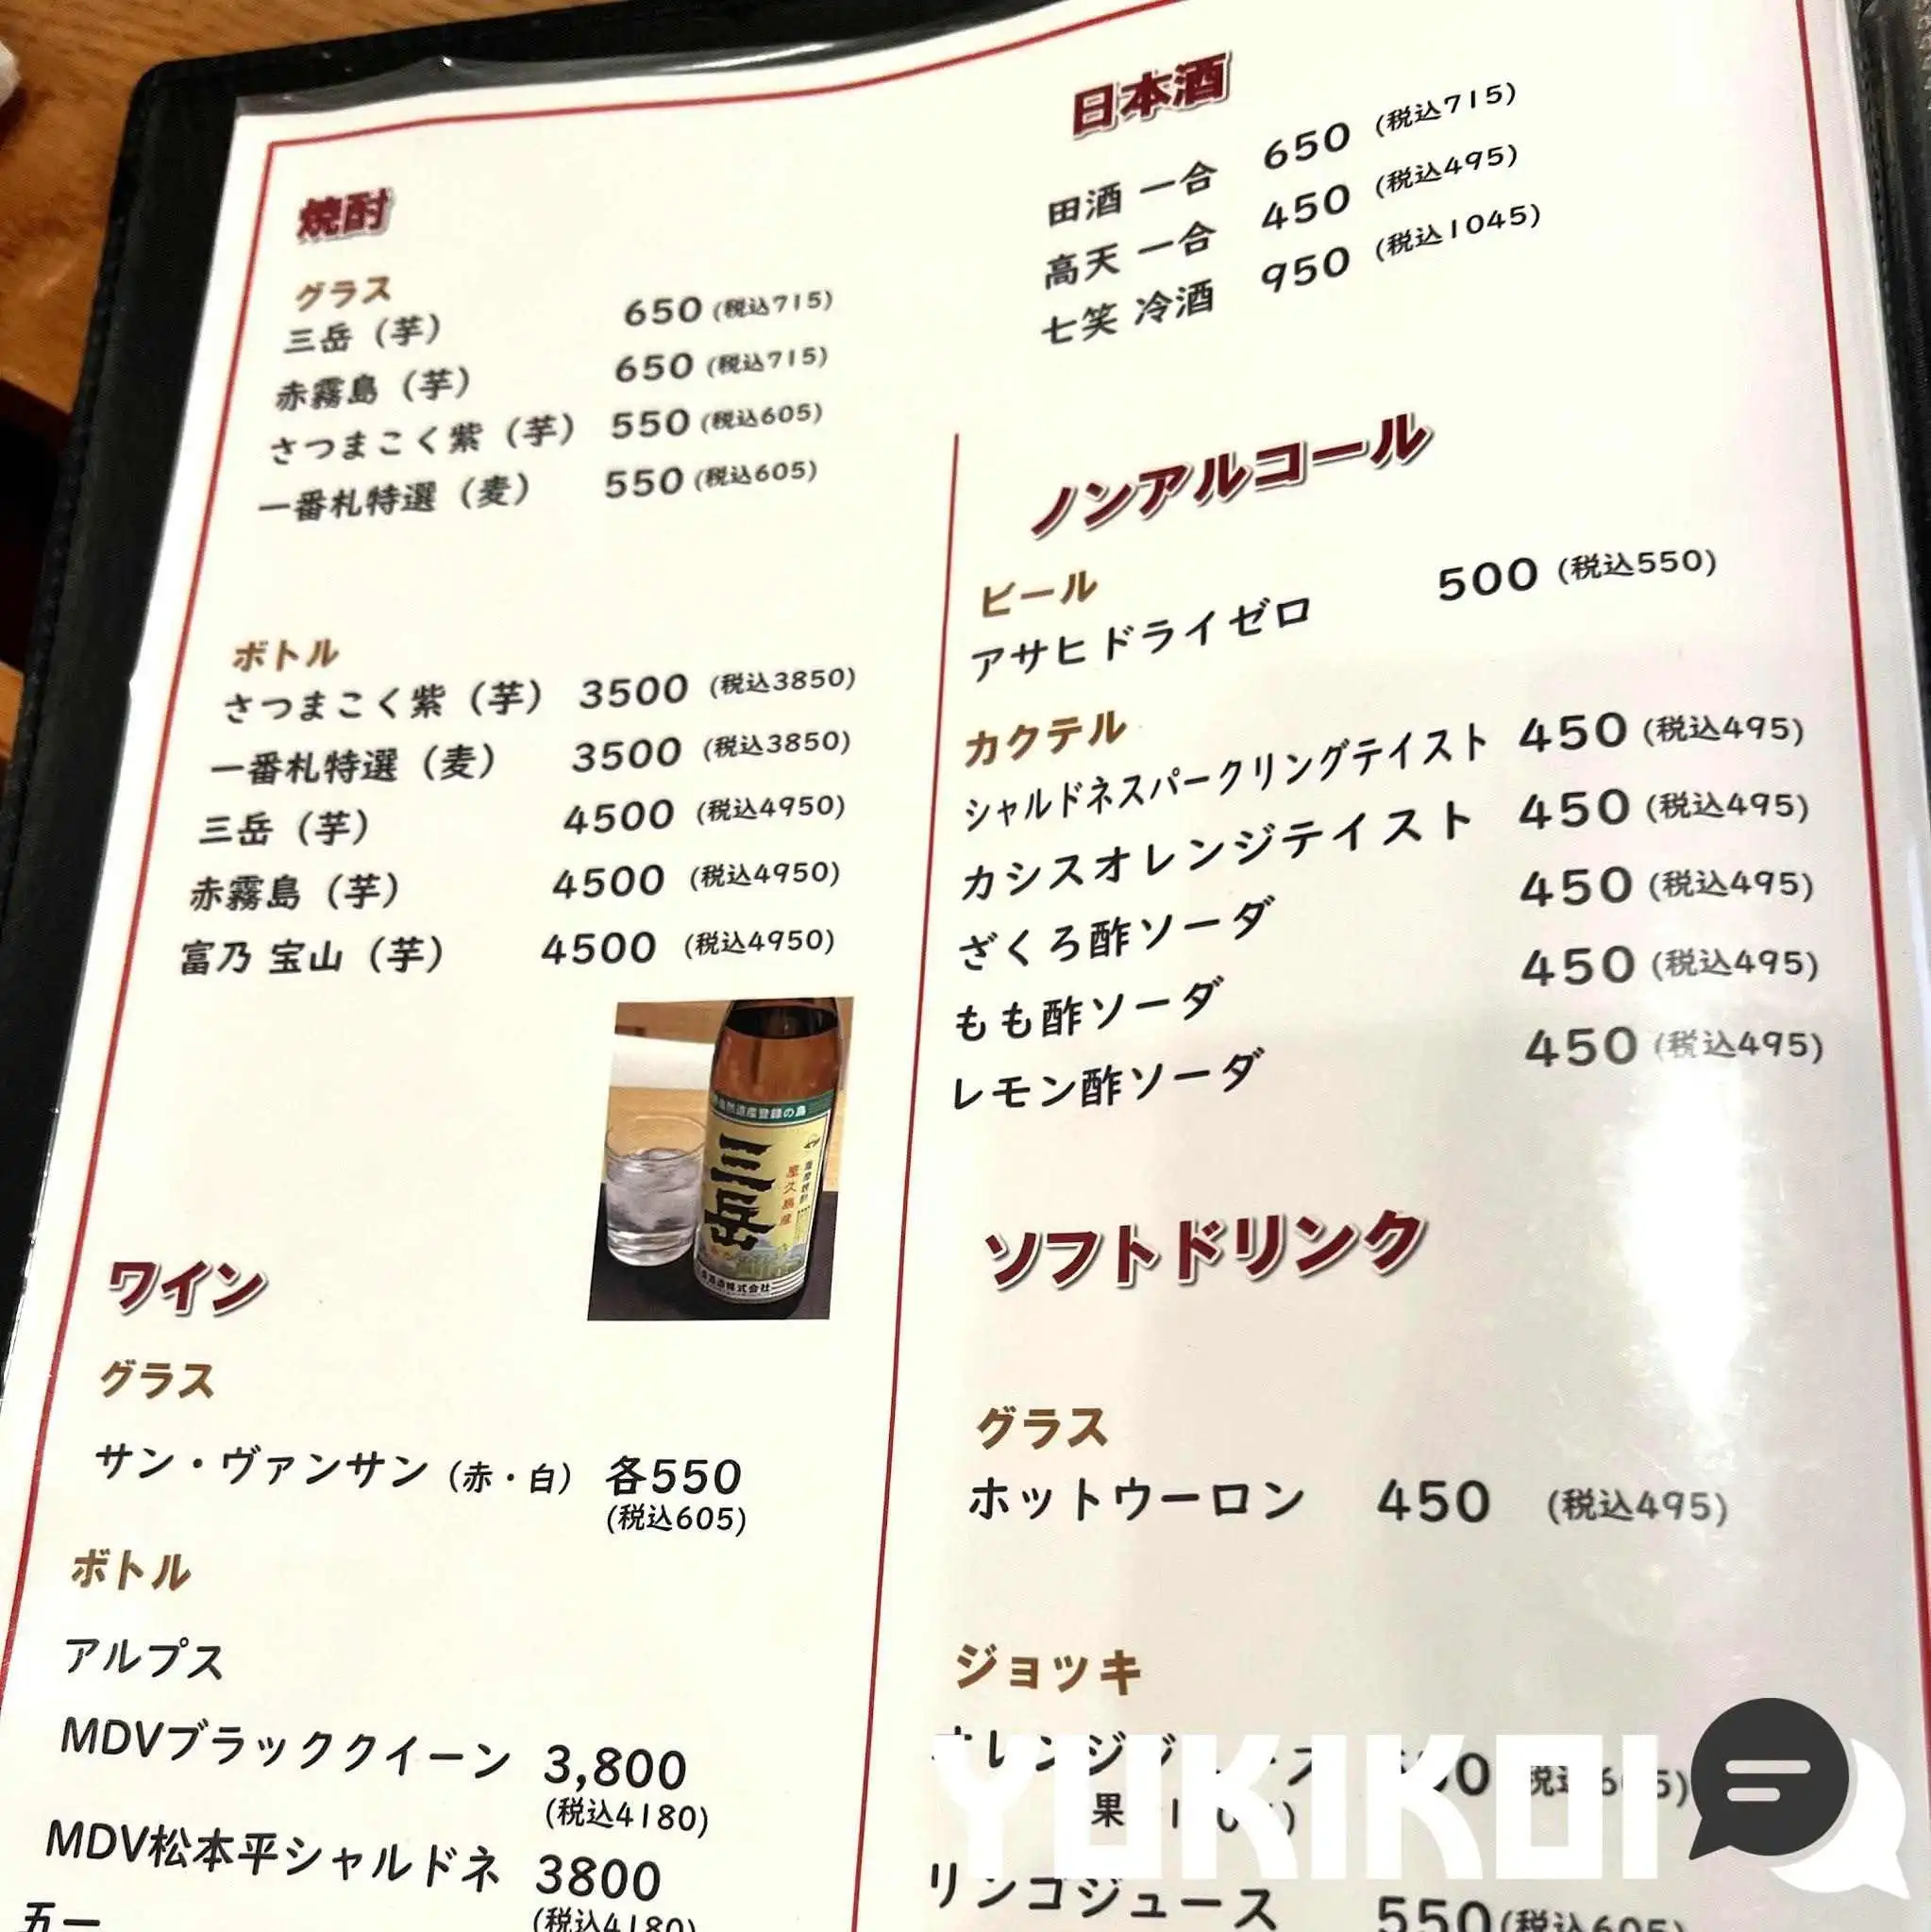 焼酎
グラス
三岳（芋） 650 (税込715)
赤霧島（芋） 650 (税込715)
さつまこく紫（芋） 550 (税込605)
一番札特選（麦） 550 (税込605)
ボトル
さつまこく紫（芋） 3500 (税込3850)
一番札特選（麦） 3500 (税込3850)
三岳（芋） 4500 (税込4950)
赤霧島（芋） 4500 (税込4950)
富乃 宝山（芋） 4500 (税込4950)
三岳
屋久島産
ワイン
グラス
サン・ヴァンサン（赤・白） 各550
(税込605)
ボトル
アルプス
MDVブラッククイーン 3,800
(税込4180)
MDV松本平シャルドネ 3800
(税込4180)
五一
日本酒
田酒 一合 650 (税込715)
高天 一合 450 (税込495)
七笑 冷酒 950 (税込1045)
ノンアルコール
ビール
アサヒドライゼロ 500 (税込550)
カクテル
シャルドネスパークリングテイスト 450 (税込495)
カシスオレンジテイスト 450 (税込495)
ざくろ酢ソーダ 450 (税込495)
もも酢ソーダ 450 (税込495)
レモン酢ソーダ 450 (税込495)
ソフトドリンク
グラス
ホットウーロン 450 (税込495)
ジョッキ
リンゴジュース 550 (税込605)
YUKIKOI